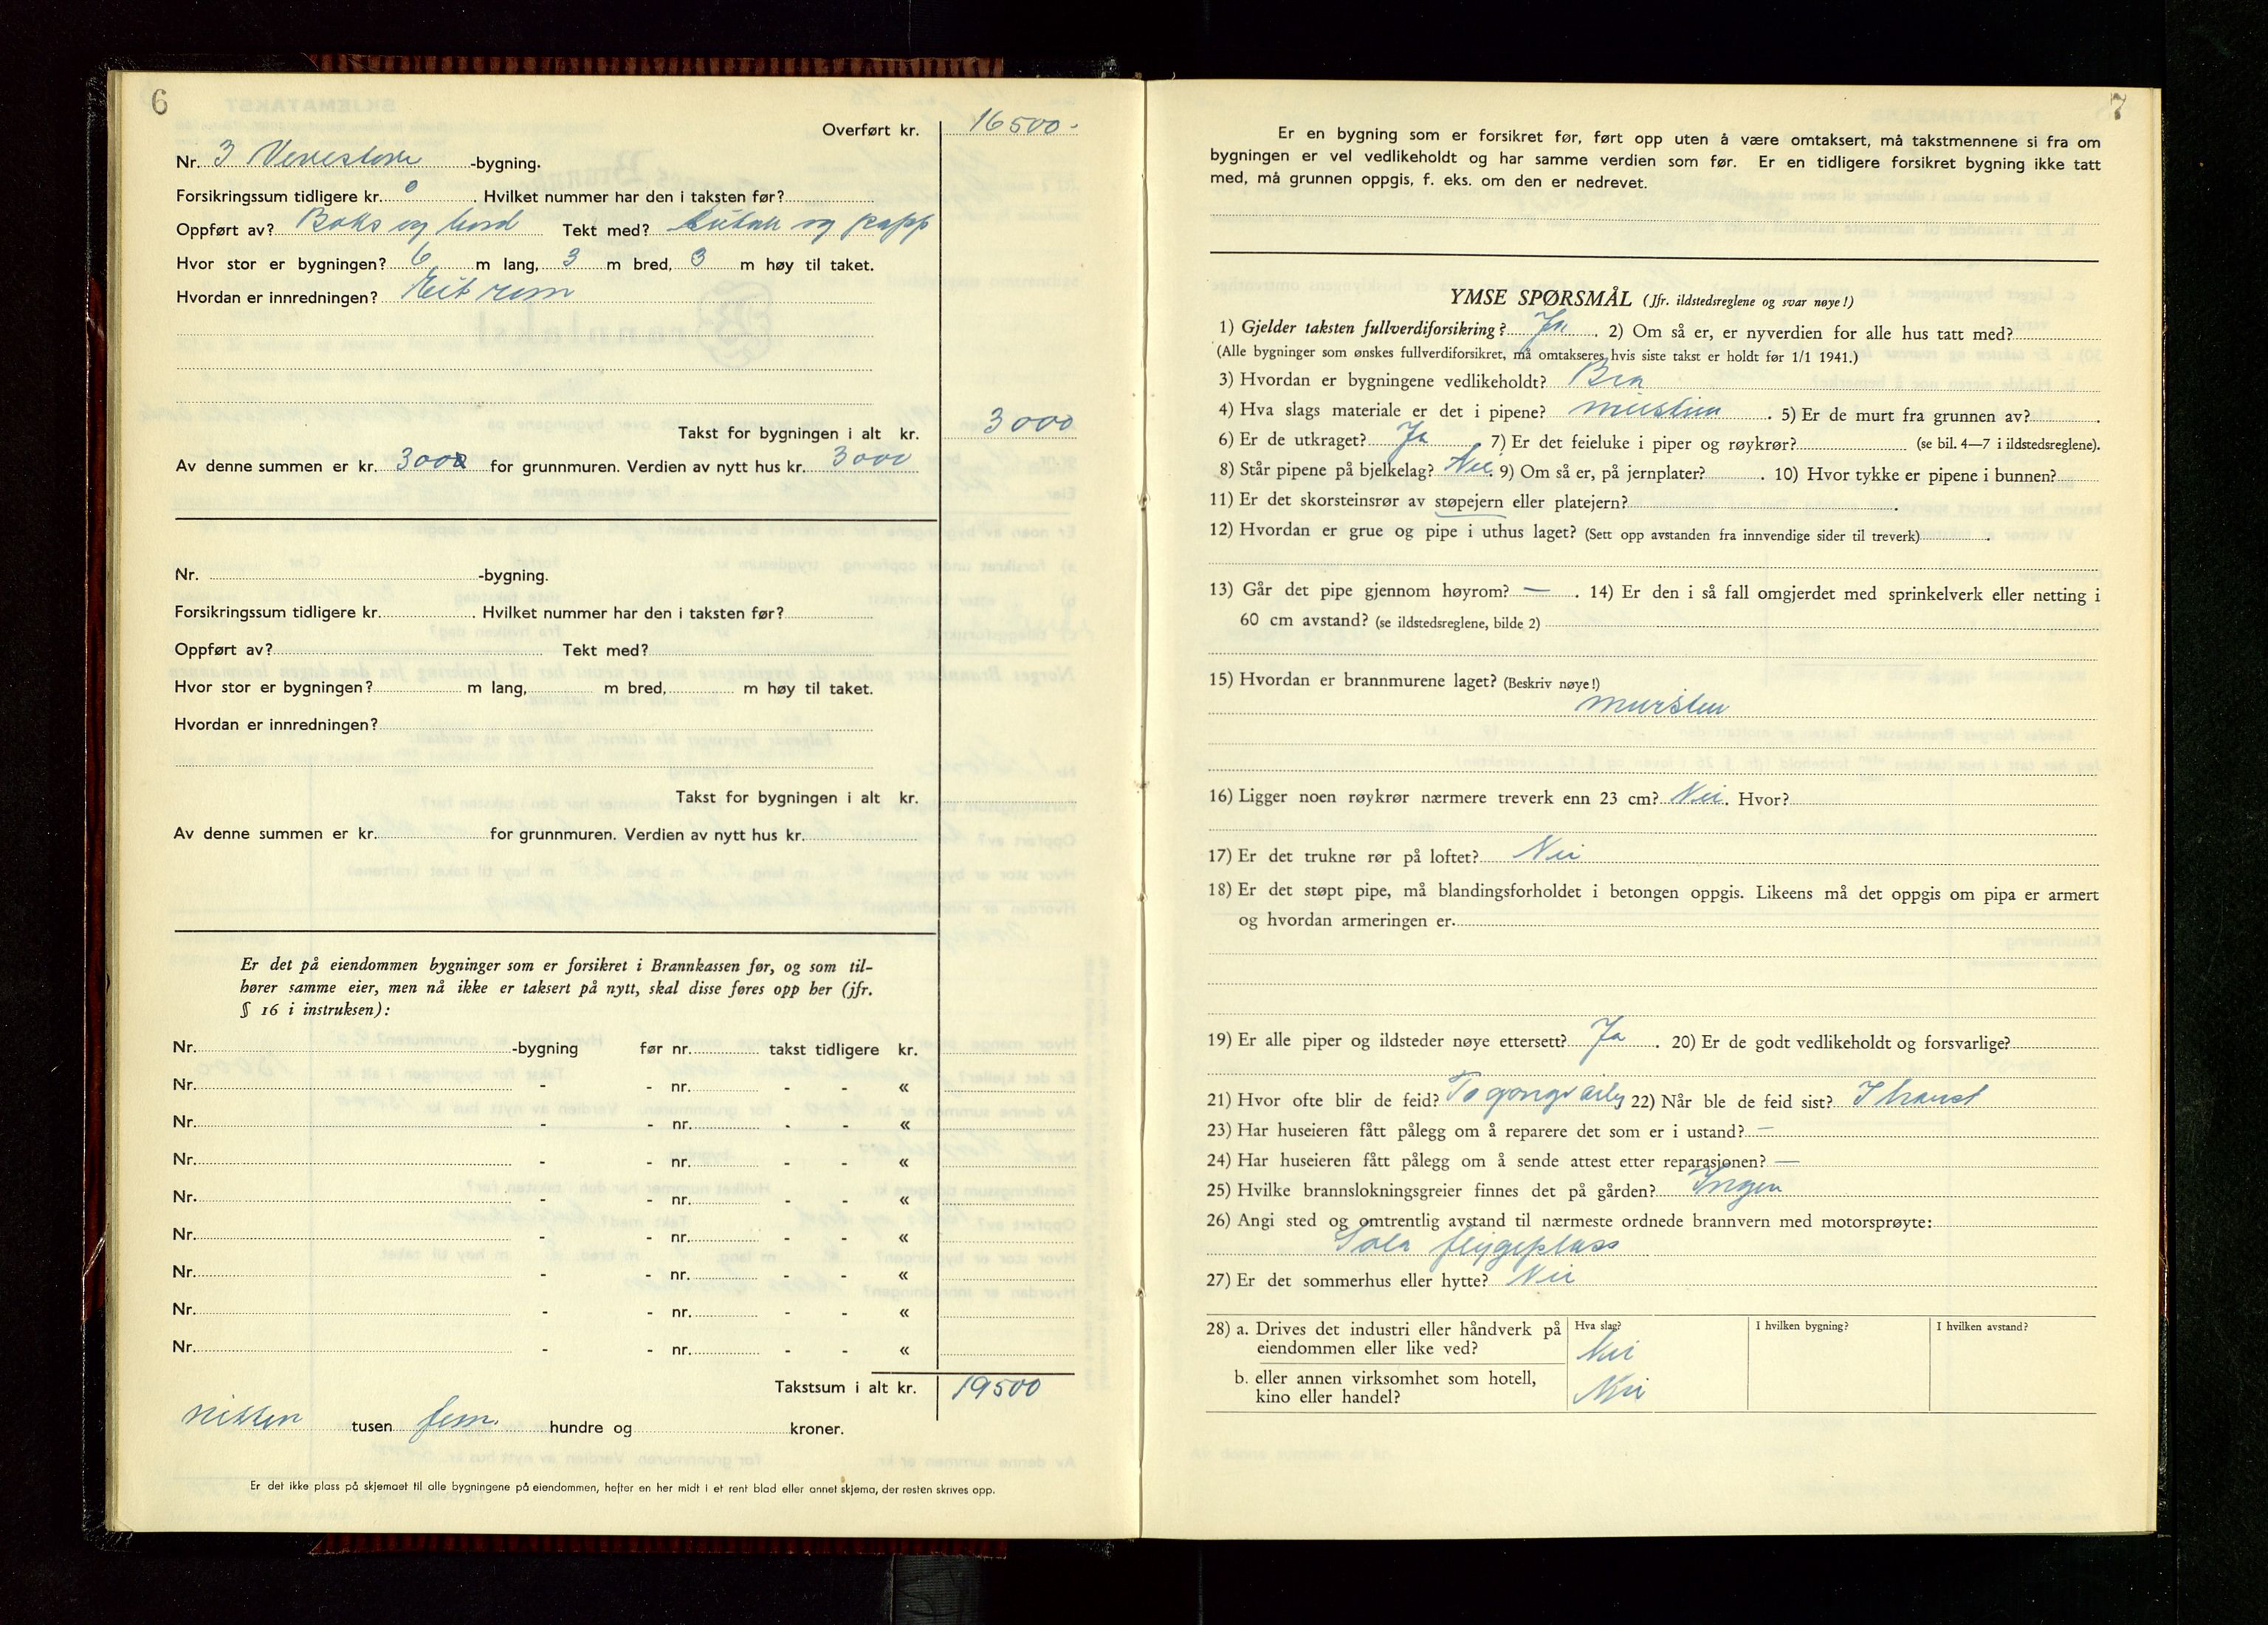 6
Overført kr. 16500.-
Nr. 3 Vevestova -bygning.
Forsikringssum tidligere kr. 0 . Hvilket nummer har den i taksten før?
Oppført av? Baks og bord Tekt med? og papp
Hvor stor er bygningen? 6 m lang, 3 m bred, 3 m høy til taket.
Hvordan er innredningen? Eit rom
Takst for bygningen i alt kr. 3000
Av denne summen er kr. 3000 for grunnmuren. Verdien av nytt hus kr. 3000
Nr. -bygning.
Forsikringssum tidligere kr. . Hvilket nummer har den i taksten før?
Oppført av? Tekt med?
Hvor stor er bygningen? m lang, m bred, m høy til taket.
Hvordan er innredningen?
Takst for bygningen i alt kr.
Av denne summen er kr. for grunnmuren. Verdien av nytt hus kr.
Er det på eiendommen bygninger som er forsikret i Brannkassen før, og som til-
hører samme eier, men nå ikke er taksert på nytt, skal disse føres opp her (jfr.
§ 16 i instruksen):
Nr. -bygning før nr. takst tidligere kr.
Nr. - - nr. - - «
Nr. - - nr. - - «
Nr. - - nr. - - «
Nr. - - nr. - - «
Nr. - - nr. - - «
Nr. - - nr. - - «
Nr. - - nr. - - «
Nr. - - nr. - - «
Takstsum i alt kr. 19500
nitten tusen fem hundre og kroner.
Er det ikke plass på skjemaet til alle bygningene på eiendommen, hefter en her midt i et rent blad eller annet skjema, der resten skrives opp.
7
Er en bygning som er forsikret før, ført opp uten å være omtaksert, må takstmennene si fra om
bygningen er vel vedlikeholdt og har samme verdien som før. Er en tidligere forsikret bygning ikke tatt
med, må grunnen oppgis, f. eks. om den er nedrevet.
YMSE SPØRSMÅL (Jfr. ildstedsreglene og svar nøye!)
1) Gjelder taksten fullverdiforsikring? Ja . 2) Om så er, er nyverdien for alle hus tatt med?
(Alle bygninger som ønskes fullverdiforsikret, må omtakseres hvis siste takst er holdt før 1/1 1941.)
3) Hvordan er bygningene vedlikeholdt? Bra
4) Hva slags materiale er det i pipene? murstein . 5) Er de murt fra grunnen av? .
6) Er de utkraget? Ja . 7) Er det feieluke i piper og røykrør? (se bil. 4—7 i ildstedsreglene).
8) Står pipene på bjelkelag? Nei. 9) Om så er, på jernplater? . 10) Hvor tykke er pipene i bunnen?
11) Er det skorsteinsrør av støpejern eller platejern? .
12) Hvordan er grue og pipe i uthus laget? (Sett opp avstanden fra innvendige sider til treverk) .
13) Går det pipe gjennom høyrom? — . 14) Er den i så fall omgjerdet med sprinkelverk eller netting i
60 cm avstand? (se ildstedsreglene, bilde 2)
15) Hvordan er brannmurene laget? (Beskriv nøye!)
murstein
16) Ligger noen røykrør nærmere treverk enn 23 cm? Nei. Hvor?
17) Er det trukne rør på loftet? Nei
18) Er det støpt pipe, må blandingsforholdet i betongen oppgis. Likeens må det oppgis om pipa er armert
og hvordan armeringen er.
19) Er alle piper og ildsteder nøye ettersett? Ja . 20) Er de godt vedlikeholdt og forsvarlige?
21) Hvor ofte blir de feid? To gongr årleg 22) Når ble de feid sist? I haust
23) Har huseieren fått pålegg om å reparere det som er i ustand? —
24) Har huseieren fått pålegg om å sende attest etter reparasjonen? —
25) Hvilke brannslokningsgreier finnes det på gården? Ingen
26) Angi sted og omtrentlig avstand til nærmeste ordnede brannvern med motorsprøyte:
Sola flygeplass
27) Er det sommerhus eller hytte? Nei
28) a. Drives det industri eller håndverk på
eiendommen eller like ved?
Hva slag?
Nei
I hvilken bygning?
I hvilken avstand?
b. eller annen virksomhet som hotell,
kino eller handel?
Nei